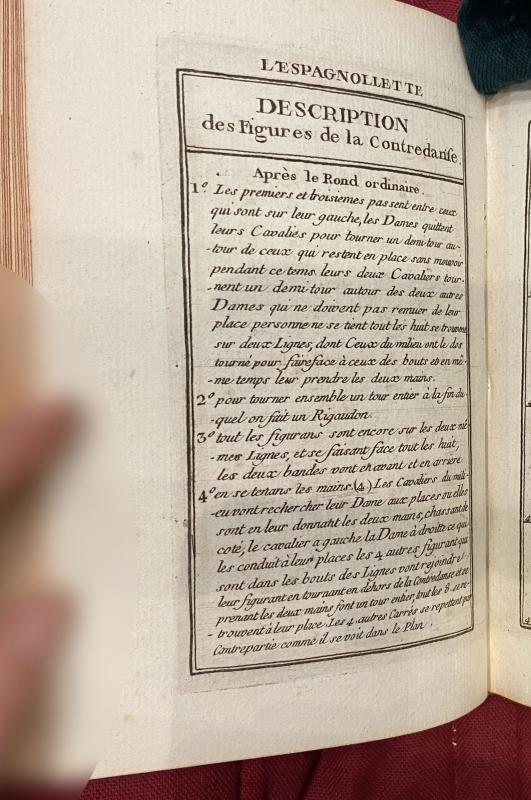 L'ESPAGNOLLETTE
DESCRIPTION
des Figures de la Contredanse.
Après le Rond ordinaire.
1º Les premiers et troisiemes passent entre ceux
qui sont sur leur gauche, les Dames quittent
leurs Cavaliés pour tourner un demi-tour au-
-tour de ceux qui restent en place sans mouvoir
pendant ce tems leurs deux Cavaliers tour-
-nent un demi-tour autour des deux autres
Dames qui ne doivent pas remuer de leur
place personne ne se tient tout les huit se trouvent
sur deux Lignes, dont Ceux du milieu ont le dos
tourné pour faire face à ceux des bouts et en mê-
-me temps leur prendre les deux mains.
2º pour tourner ensemble un tour entier à la fin du-
-quel on fait un Rigaudon.
3º tout les figurans sont encore sur les deux mê-
-mes Lignes, et se faisant face tout les huit,
les deux bandes vont en avant et en arriere
4º en se tenans les mains (4.) Les Cavaliers du mili-
-eu vont rechercher leur Dame aux places ou elles
sont en leur donnant les deux mains, chassant de
coté, le cavalier a gauche la Dame à droitte ce qui
les conduit à leurs places les 4 autres figurant qui
sont dans les bouts des Lignes vont rejoindre
leur figurant en tournant en dehors de la Contredanse et se
prenant les deux mains font un tour entier, tout les 8. se re-
-trouvent à leur place. Les 4. autres Carrés se repettent par
Contrepartie comme il se voit dans le Plan.